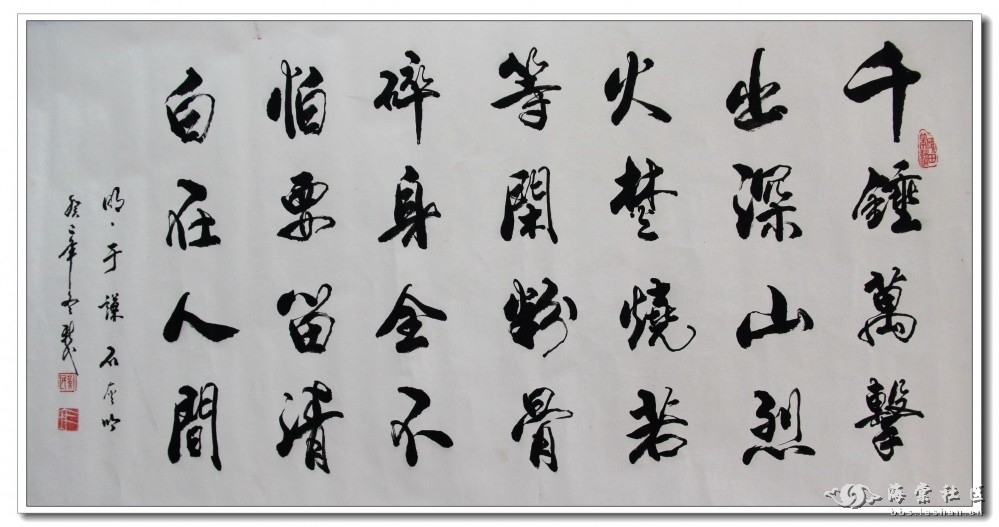 千錘萬擊
出深山烈
火焚燒若
等閑粉骨
碎身全不
怕要留清
白在人間
明、于謙 石灰吟
海棠社区
bbs.leshan.cn